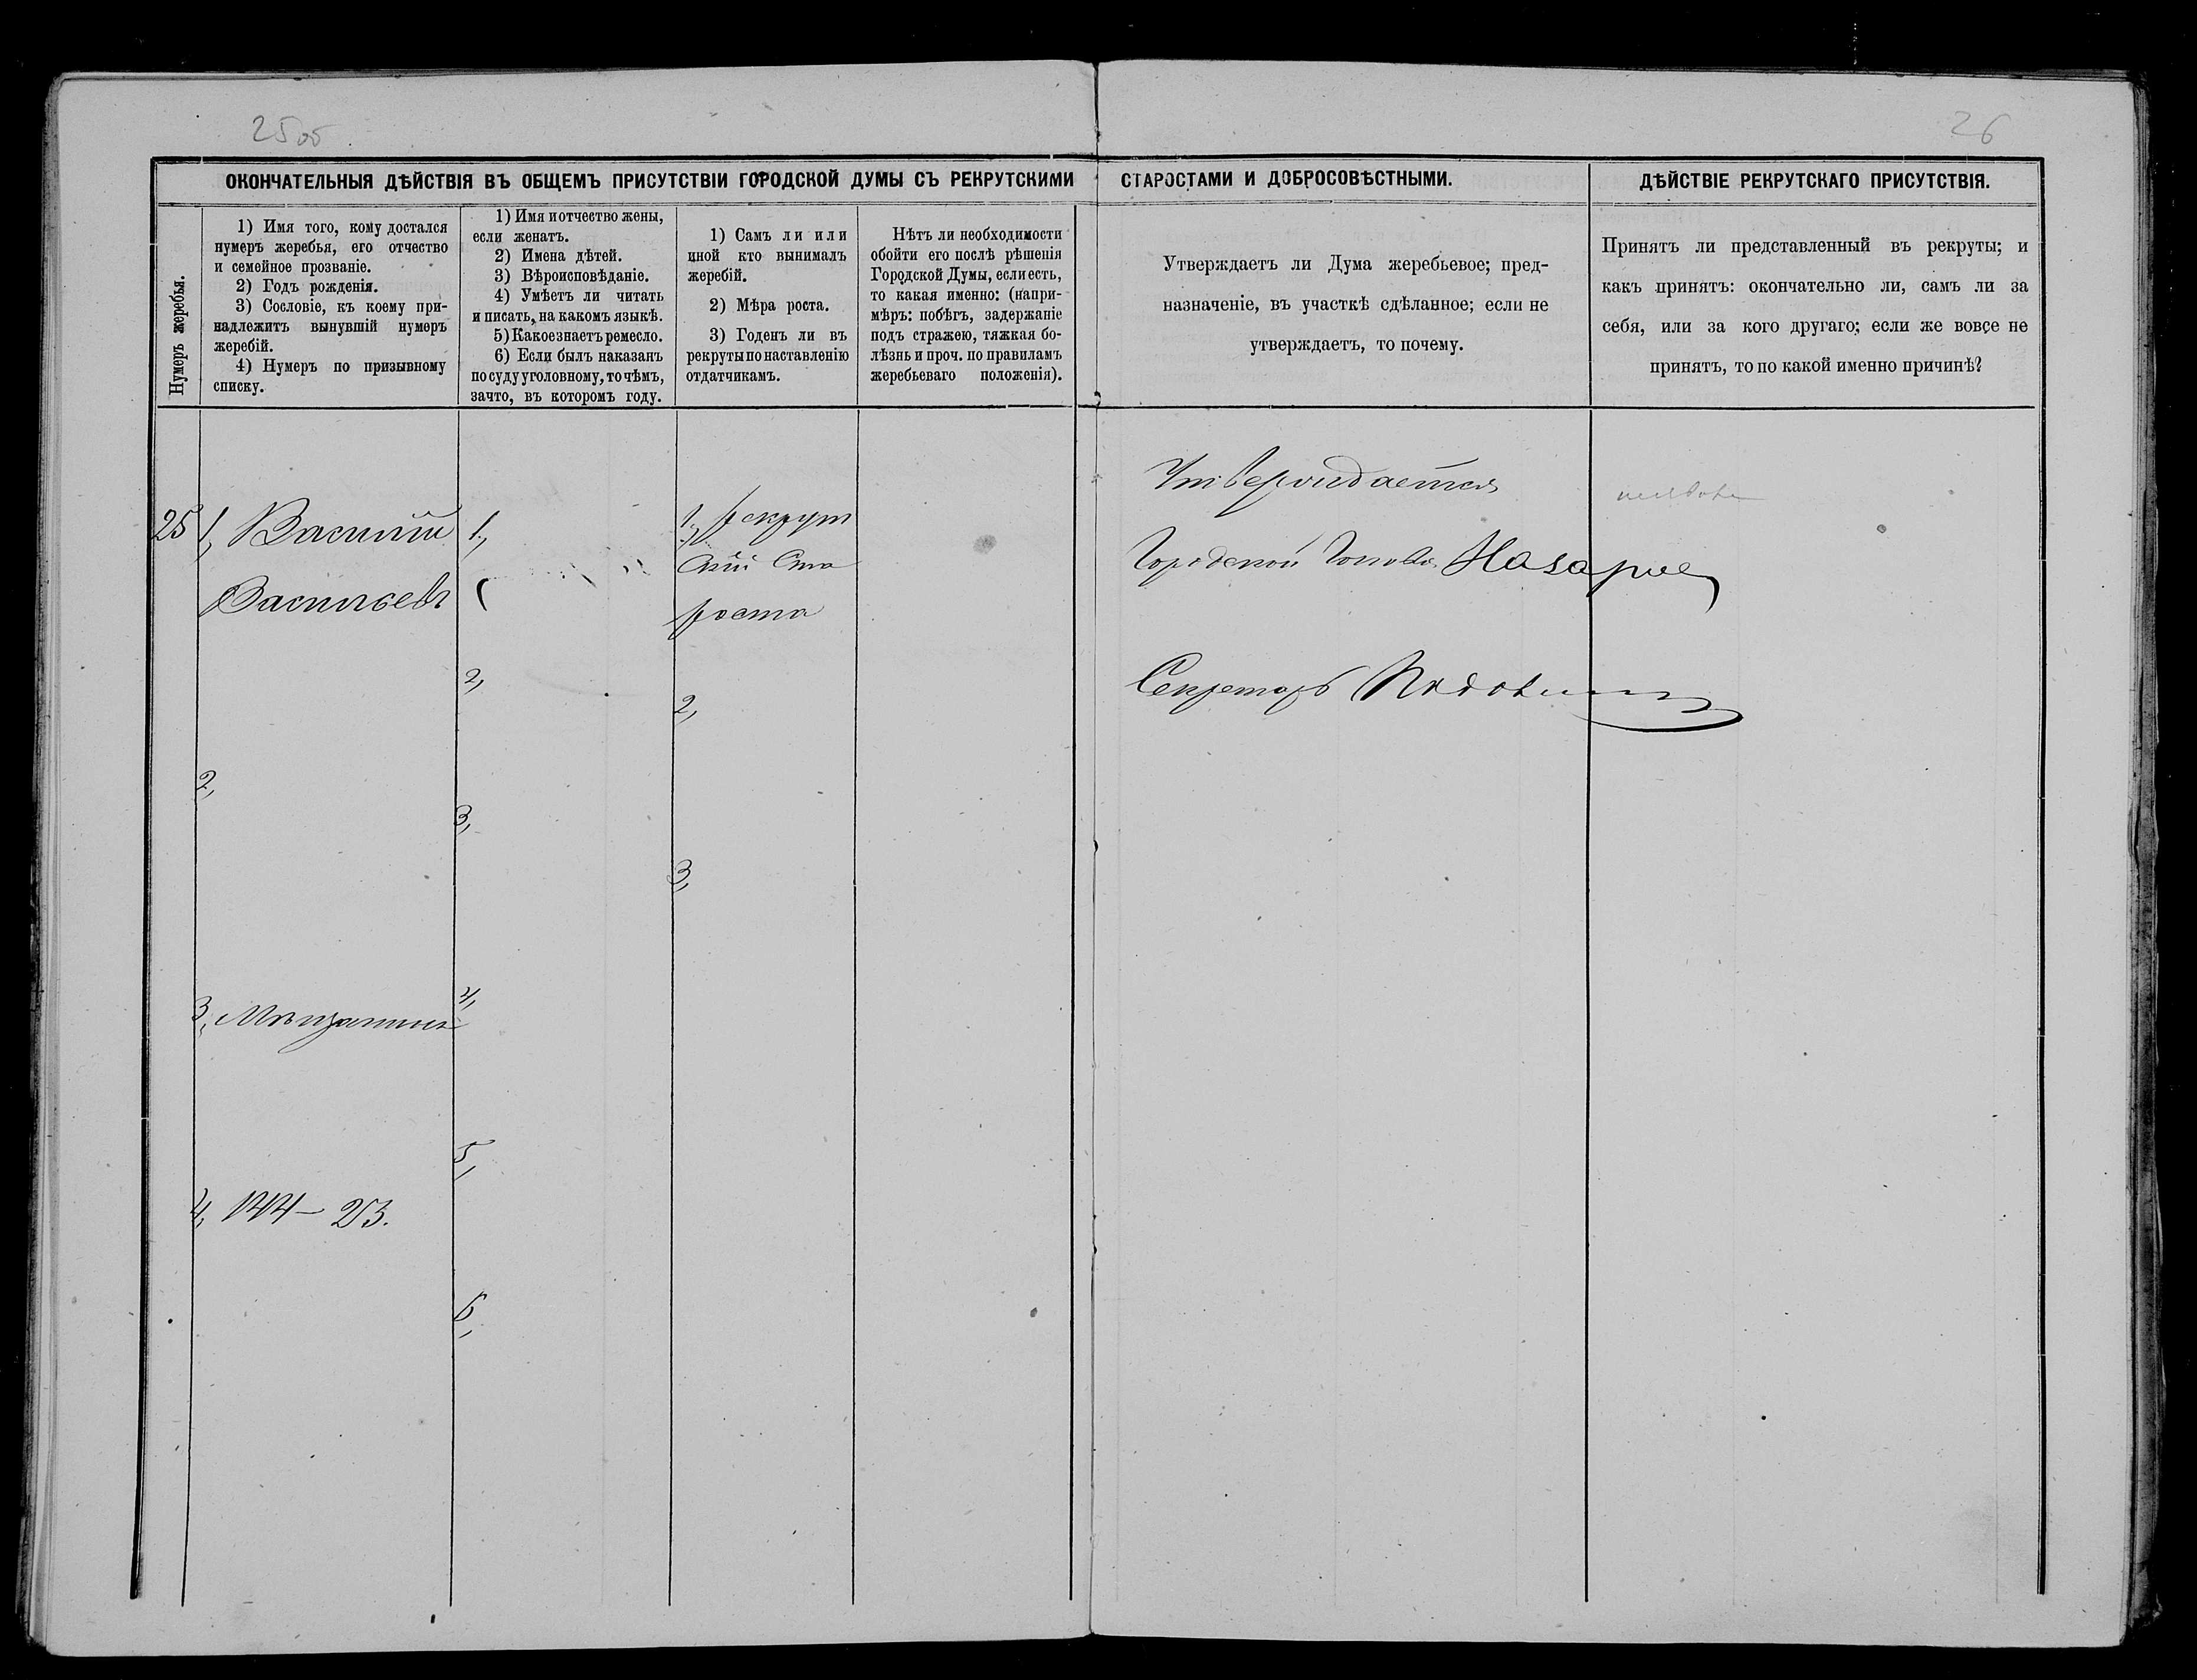 25об
26
ОКОНЧАТЕЛЬНЫЯ ДѢЙСТВІЯ ВЪ ОБЩЕМЪ ПРИСУТСТВІИ ГОРОДСКОЙ ДУМЫ СЪ РЕКРУТСКИМИ СТАРОСТАМИ И ДОБРОСОВѢСТНЫМИ.
ДѢЙСТВІЕ РЕКРУТСКАГО ПРИСУТСТВІЯ.
Нумеръ жеребья.
1) Имя того, кому достался
нумеръ жеребья, его отчество
и семейное прозваніе.
2) Годъ рожденія.
3) Сословіе, къ коему при-
надлежитъ вынувшій нумеръ
жеребій.
4) Нумеръ по призывному
списку.
1) Имя и отчество жены,
если женатъ.
2) Имена дѣтей.
3) Вѣроисповѣданіе.
4) Умѣетъ ли читать
и писать, на какомъ языкѣ.
5) Какое знаетъ ремесло.
6) Если былъ наказанъ
по суду уголовному, то чѣмъ,
за что, въ которомъ году.
1) Самъ ли или
иной кто вынималъ
жеребій.
2) Мѣра роста.
3) Годенъ ли въ
рекруты по наставленію
отдатчикамъ.
Нѣтъ ли необходимости
обойти его послѣ рѣшенія
Городской Думы, если есть,
то какая именно: (напри-
мѣръ: побѣгъ, задержаніе
подъ стражею, тяжкая бо-
лѣзнь и проч. по правиламъ
жеребьеваго положенія).
Утверждаетъ ли Дума жеребьевое; пред-
назначеніе, въ участкѣ сдѣланное; если не
утверждаетъ, то почему.
Принятъ ли представленный въ рекруты; и
какъ принятъ: окончательно ли, самъ ли за
себя, или за кого другаго; если же вовсе не
принятъ, то по какой именно причинѣ?
25
1, Василій
Васильевъ
2,
3, Мѣщанинъ
4, 144 — 23.
1,
2,
3,
4,
5,
6,
1, рекрут
скій Ста
роста
2,
3,
Утверждается
Городской Голова Назаров
Секретарь